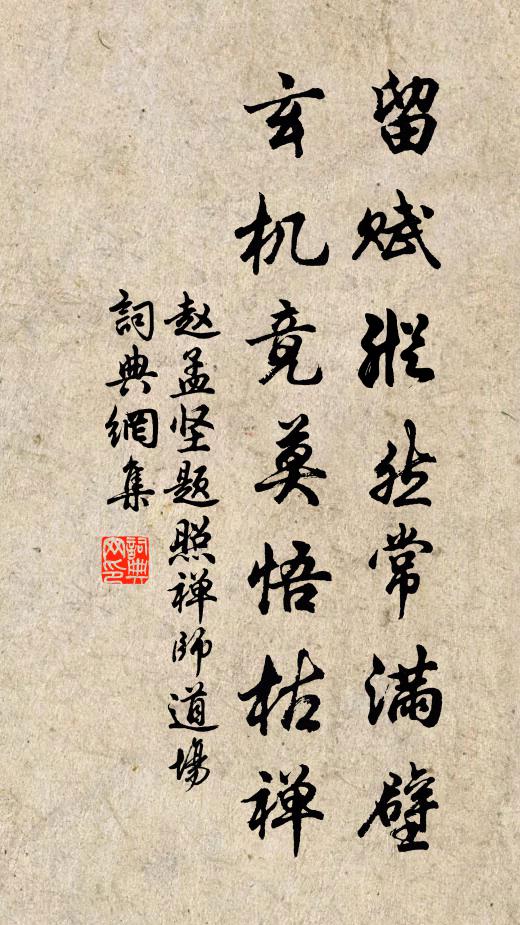 留赋纵然常满壁
玄机竟莫悟枯禅
赵孟坚题照禅师道场
詞典網集
詞典网印